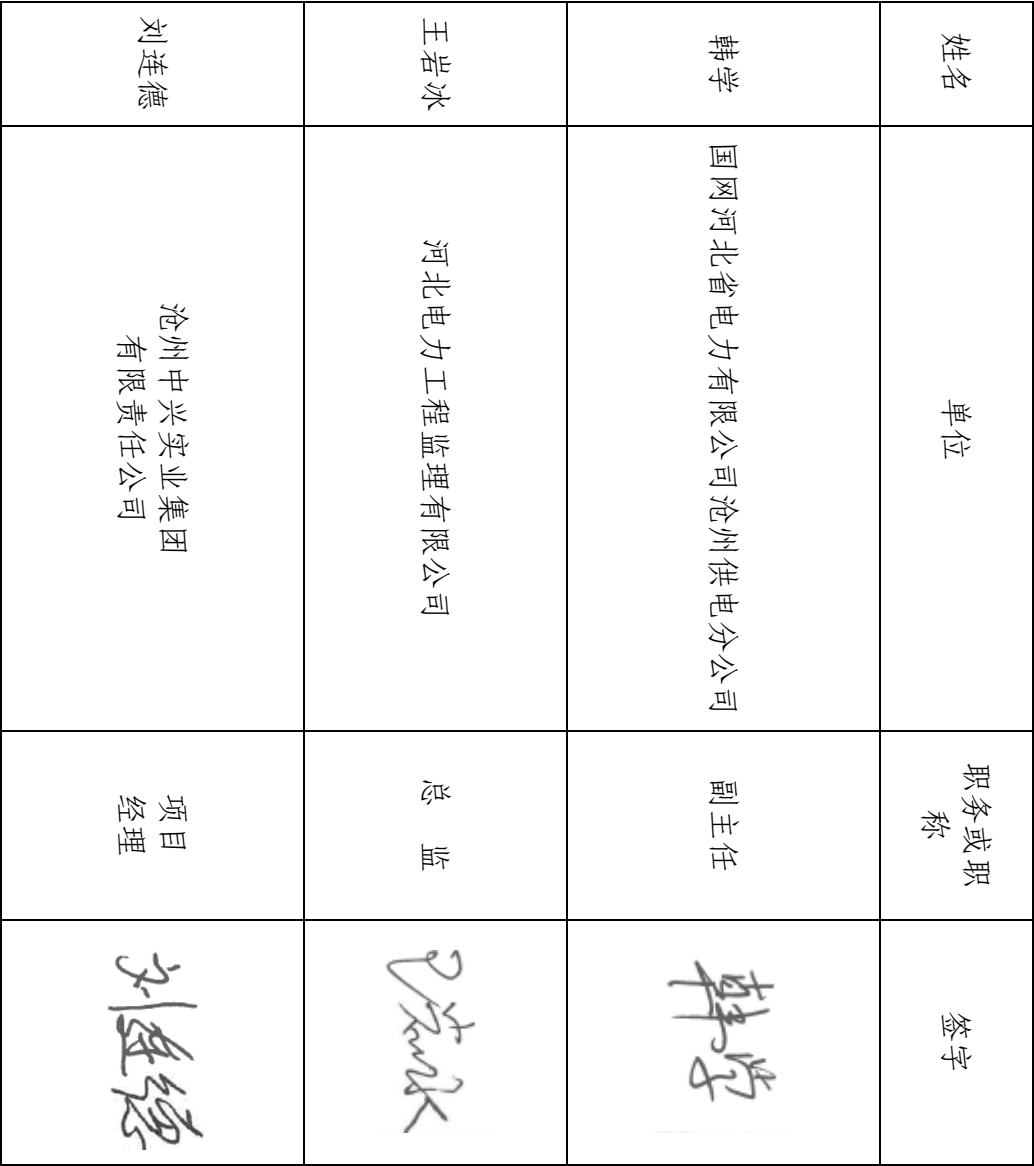 姓名
单位
职务或职
称
签字
韩学
国网河北省电力有限公司沧州供电分公司
副主任
韩学
王岩冰
河北电力工程监理有限公司
总 监
王岩冰
刘连德
沧州中兴实业集团
有限责任公司
项目
经理
刘连德